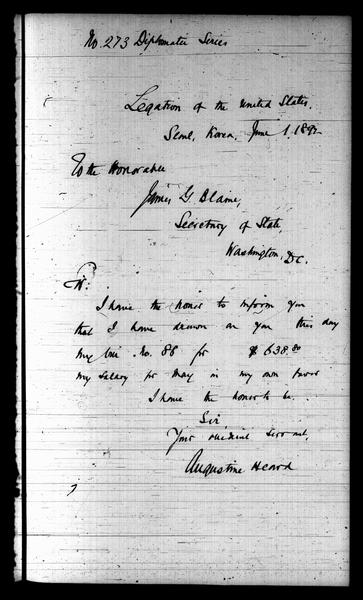 No. 273 Diplomatic Series
Legation of the United States,
Seoul, Korea, June 1, 1892
To the Honorable
James G. Blaine,
Secretary of State,
Washington, D.C.
Sir:
I have the honor to inform you
that I have drawn on you this day
my No. 86 for $638.80
my salary for May in my own favor
I have the honor to be.
Sir,
Your obedient servant,
Augustine Heard